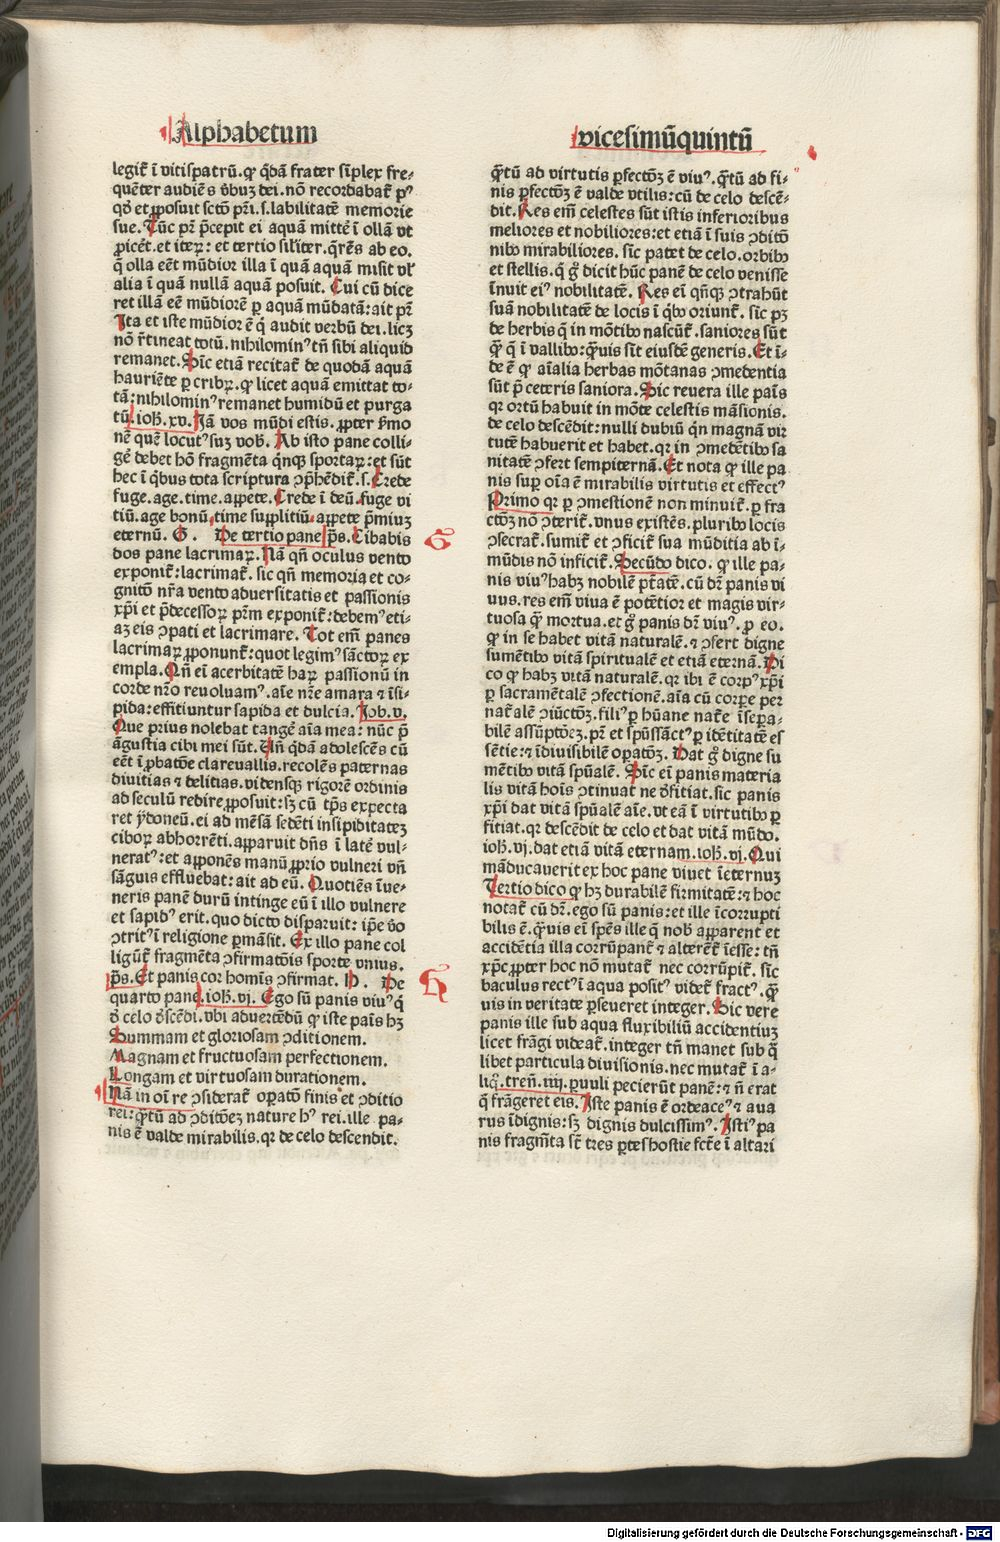 Alphabetum
vicesimũquintũ
legit̃ ĩ vitispatrũ. ꝙ q̃dã frater sĩplex fre⸗
quẽter audiẽs ꝟbuꝫ dei. nõ recordabat̃ pꝰ
qð et ꝓposuit sctõ pr̃i. s. labilitatẽ memorie
sue. Tũc pr̃ p̃cepit ei aquã mittẽ ĩ ollã vt
ꝓicẽt. et iteꝝ: et tertio siliter. q̃rẽs ab eo.
q̃ olla eẽt mũdior illa ĩ quã aquã misit vl̃
alia ĩ quã nullã aquã posuit. Cui cũ dice
ret illã eẽ mũdiorẽ ꝑ aquã mũdatã: ait pr̃
Ita et iste mũdior ẽ q̃ audit verbũ dei. licꝫ
nõ r̃tineat totũ. nihilominꝰ tñ sibi aliquid
remanet. Sic etiã recitat̃ de quodã aquã
hauriẽte ꝑ cribꝝ. ꝙ licet aquã emittat to⸗
tã: nihilominꝰ remanet humidũ et purga
tũ. ioh̃. xv. Iã vos mũdi estis. ꝓpter ẜmo
nẽ quẽ locutꝰ suꝫ vob̃. Ab isto pane colli⸗
gẽ debet hõ fragmẽta q̃nqꝫ sportaꝝ: et sũt
hec ĩ q̃bus tota scriptura ꝯp̃hẽdit̃. s. Crede
fuge. age. time. appete. Crede ĩ deũ. fuge vi
tiũ. age bonũ, time suppliciũ, appete p̃miuꝫ
eternũ. G. De tertio pane p̃s. Cibabis
dos pane lacrimaꝝ. Nã qñ oculus vento
exponit̃: lacrimat̃. sic qñ memoria et co⸗
gnitõ nr̃a vento aduersitatis et passionis
xp̃i et p̃decessoꝝ pr̃m exponit̃: debemꝰ eti⸗
aꝫ eis ꝯpati et lacrimare. Tot em̃ panes
lacrimaꝝ ꝓponunt̃: quot legimꝰ sãctoꝝ ex
empla. Qñ ei acerbitatẽ haꝝ passionũ in
corde nr̃o reuoluamꝰ. aĩe nr̃e amara ⁊ ĩsi⸗
pida: effitiuntur sapida et dulcia. Job. v.
Que prius nolebat tangẽ aĩa mea: nũc p̃
ãgustia cibi mei sũt. Uñ q̃dã adolescẽs cũ
eẽt ĩ ꝓbatõe clareuallis. recolẽs paternas
diuitias ⁊ delitias. vidensqꝫ rigorẽ ordinis
ad seculũ redire ꝓposuit: sꝫ cũ tp̃s expecta
ret ydoneũ. ei ad mẽsã sedẽti insipiditateꝫ
ciboꝝ abhorrẽti. apparuit dñs ĩ latẽ vul⸗
neratꝰ: et apponẽs manũ ꝓprio vulneri vñ
sãguis effluebat: ait ad eũ. Quotiẽs ĩue⸗
neris panẽ durũ intinge eũ ĩ illo vulnere
et sapidꝰ erit. quo dicto disparuit: ip̃e ꝟo
ꝯtritꝰ ĩ religione ꝑmãsit. Ex illo pane col
ligũt̃ fragmẽta ꝯfirmatõis sporte vnius.
p̃s. Et panis cor homĩs ꝯfirmat. H. De
quarto pane. ioh̃. vj. Ego sũ panis viuꝰ q̃
ð celo ðscẽdi. vbi aduertẽdũ ꝙ iste paĩs hꝫ
Summam et gloriosam ꝯditionem.
Magnam et fructuosam perfectionem.
Longam et virtuosam durationem.
Nã in oĩ re ꝯsiderat̃ oꝑatõ finis et ꝯditio
rei: q̃tũ ad ꝯditõeꝫ nature hꝰ rei. ille pa⸗
nis ẽ valde mirabilis. qꝛ de celo descendit.
G
H
q̃tũ ad virtutis ꝑfectõꝫ ẽ viuꝰ. q̃tũ ad fi⸗
nis ꝑfectõꝫ ẽ valde vtilis: cũ de celo descẽ⸗
dit. Res em̃ celestes sũt istis inferioribus
meliores et nobiliores: et etiã ĩ suis ꝯditõ
nibꝰ mirabiliores. sic patet de celo. orbibꝰ
et stellis. q̃ g̃ dicit hũc panẽ de celo venisse
ĩnuit eiꝰ nobilitatẽ. Res ei q̃nqꝫ ꝯtrahũt
suã nobilitatẽ de locis ĩ q̃bꝰ oriunt̃. sic pꝫ
de herbis q̃ in mõtibꝰ nascũt̃. saniores sũt
q̃ q̃ ĩ vallibꝰ: q̃uis sĩt eiusdẽ generis. Et ĩ⸗
de ẽ ꝙ aĩalia herbas mõtanas ꝯmedentia
sũt p̃ ceteris saniora. Sic reuera ille paĩs
qꝛ ortũ habuit in mõte celestis mãsionis.
de celo descẽdit: nulli dubiũ q̃n magnã vir
tutẽ habuerit et habet. qꝛ in ꝯmedẽtibꝰ sa
nitatẽ ꝯfert sempiternã. Et nota ꝙ ille pa
nis suꝑ oĩa ẽ mirabilis virtutis et effectꝰ
Primo qꝛ ꝑ ꝯmestionẽ non minuit̃. ꝑ fra
ctõꝫ nõ ꝯterit̃. vnus existẽs. pluribꝰ locis
ꝯsecrat̃. sumit̃ et ꝯficit̃ sua mũditia ab ĩ⸗
mũdis nõ inficit̃. Secũdo dico. ꝙ ille pa⸗
nis viuꝰ habꝫ nobilẽ p̃tãtẽ. cũ dr̃ panis vi
uus. res em̃ viua ẽ potẽtior et magis vir⸗
tuosa q̃ mortua. et g̃ panis dr̃ viuꝰ. ꝓ eo.
ꝙ in se habet vitã naturalẽ. ⁊ ꝯfert digne
sumẽtibꝰ vitã spiritualẽ et etiã eternã. Di
co ꝙ habꝫ vitã naturalẽ. qꝛ ibi ẽ corpꝰ xp̃i
ꝑ sacramẽtalẽ ꝯfectionẽ. aĩa cũ corꝑe per
nat̃alẽ ꝯiũctõꝫ. filiꝰ ꝑ hũane nat̃e ĩsepa⸗
bilẽ assũptõeꝫ. pr̃ et spũssãctꝰ ꝑ idẽtitatẽ es
sẽtie: ⁊ ĩdiuisibilẽ oꝑatõꝫ. Dat g̃ digne su
mẽtibꝰ vitã spũalẽ. Sic ei panis materia
lis vitã hoĩs ꝯtinuat ne ðfitiat. sic panis
xp̃i dat vitã spũalẽ aĩe. vt eã ĩ virtutibꝰ ꝑ
fitiat. qꝛ descẽdit de celo et dat vitã mũdo.
ioh̃. vj. dat etiã vitã eternam. ioh̃. vj. Qui
mãducauerit ex hoc pane viuet ĩeternuꝫ
Tertio dico ꝙ hꝫ durabilẽ firmitatẽ: ⁊ hoc
notat̃ cũ dr̃. ego sũ panis: et ille ĩcorrupti
bilis ẽ. q̃uis ei spẽs ille q̃ nob̃ apparent et
accidẽtia illa corrũpant̃ ⁊ alterẽt̃ ĩesse: tñ
xp̃c ꝓpter hoc nõ mutat̃ nec corrũpit̃. sic
baculus rectꝰ ĩ aqua positꝰ videt̃ fractꝰ. q̃
uis in veritate ꝑseueret integer. Sic vere
panis ille sub aqua fluxibiliũ accidentiuꝫ
licet frãgi videat̃. integer tñ manet sub q̃
libet particula diuisionis. nec mutat̃ ĩ a⸗
liq̃. tren̄. iiij. ꝑuuli pecierũt panẽ: ⁊ ñ erat
q̃ frãgeret eis. Iste panis ẽ ordeaceꝰ ⁊ aua
rus ĩdignis: sꝫ dignis dulcissimꝰ. Istiꝰ pa
nis fragm̃ta st̃ tres ꝑtes hostie fct̃e ĩ altari
Digitalisierung gefördert durch die Deutsche Forschungsgemeinschaft - DFG